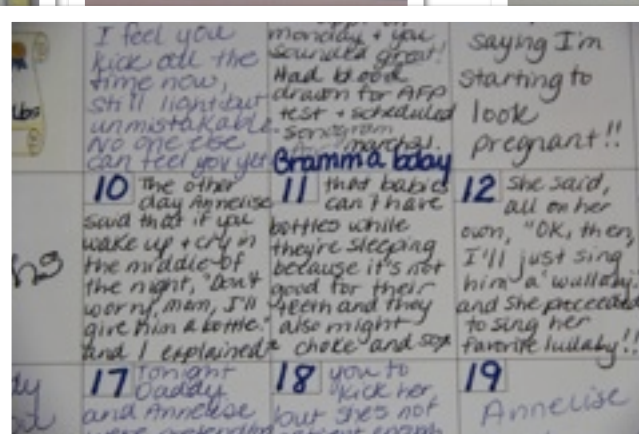 lbs
I feel you
kick all the
time now,
still light but
unmistakable.
No one else
can feel you yet
monday + you
sounded great!
Had blood
drawn for AFP
test + scheduled
sonogram
march 21.
Gramma bday
saying I'm
starting to
look
pregnant!!
10 The other
day Annelise
said that if you
wake up + cry in
the middle of
the night, "Don't
worry, mom, I'll
give him a bottle."
and I explained
11 that babies
can't have
bottles while
they're sleeping
because it's not
good for their
teeth and they
also might
choke and
12 She said,
all on her
own, "OK, then,
I'll just sing
him a 'wullaby.'
and she proceeded
to sing her
favorite lullaby!!
17 Tonight
Daddy
and Annelise
were pretending
18 you to
kick her
but she's not
19
Annelise